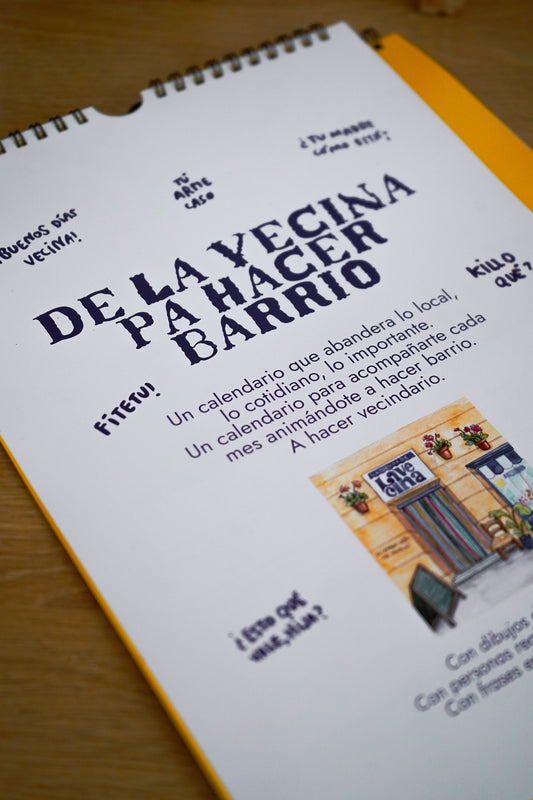 ¿TU MADRE
CÓMO ESTÁ?
TÚ
ARME
CASO
¡BUENOS DÍAS
VECINA!
DE LA VECINA
PA HACER
BARRIO
KILLO
QUÉ?
FÍTETU!
Un calendario que abandera lo local,
lo cotidiano, lo importante.
Un calendario para acompañarte cada
mes animándote a hacer barrio.
A hacer vecindario.
La ve
cina
¿ESTO QUÉ
VALE, HIJA?
Con dibujos
Con personas
Con frases